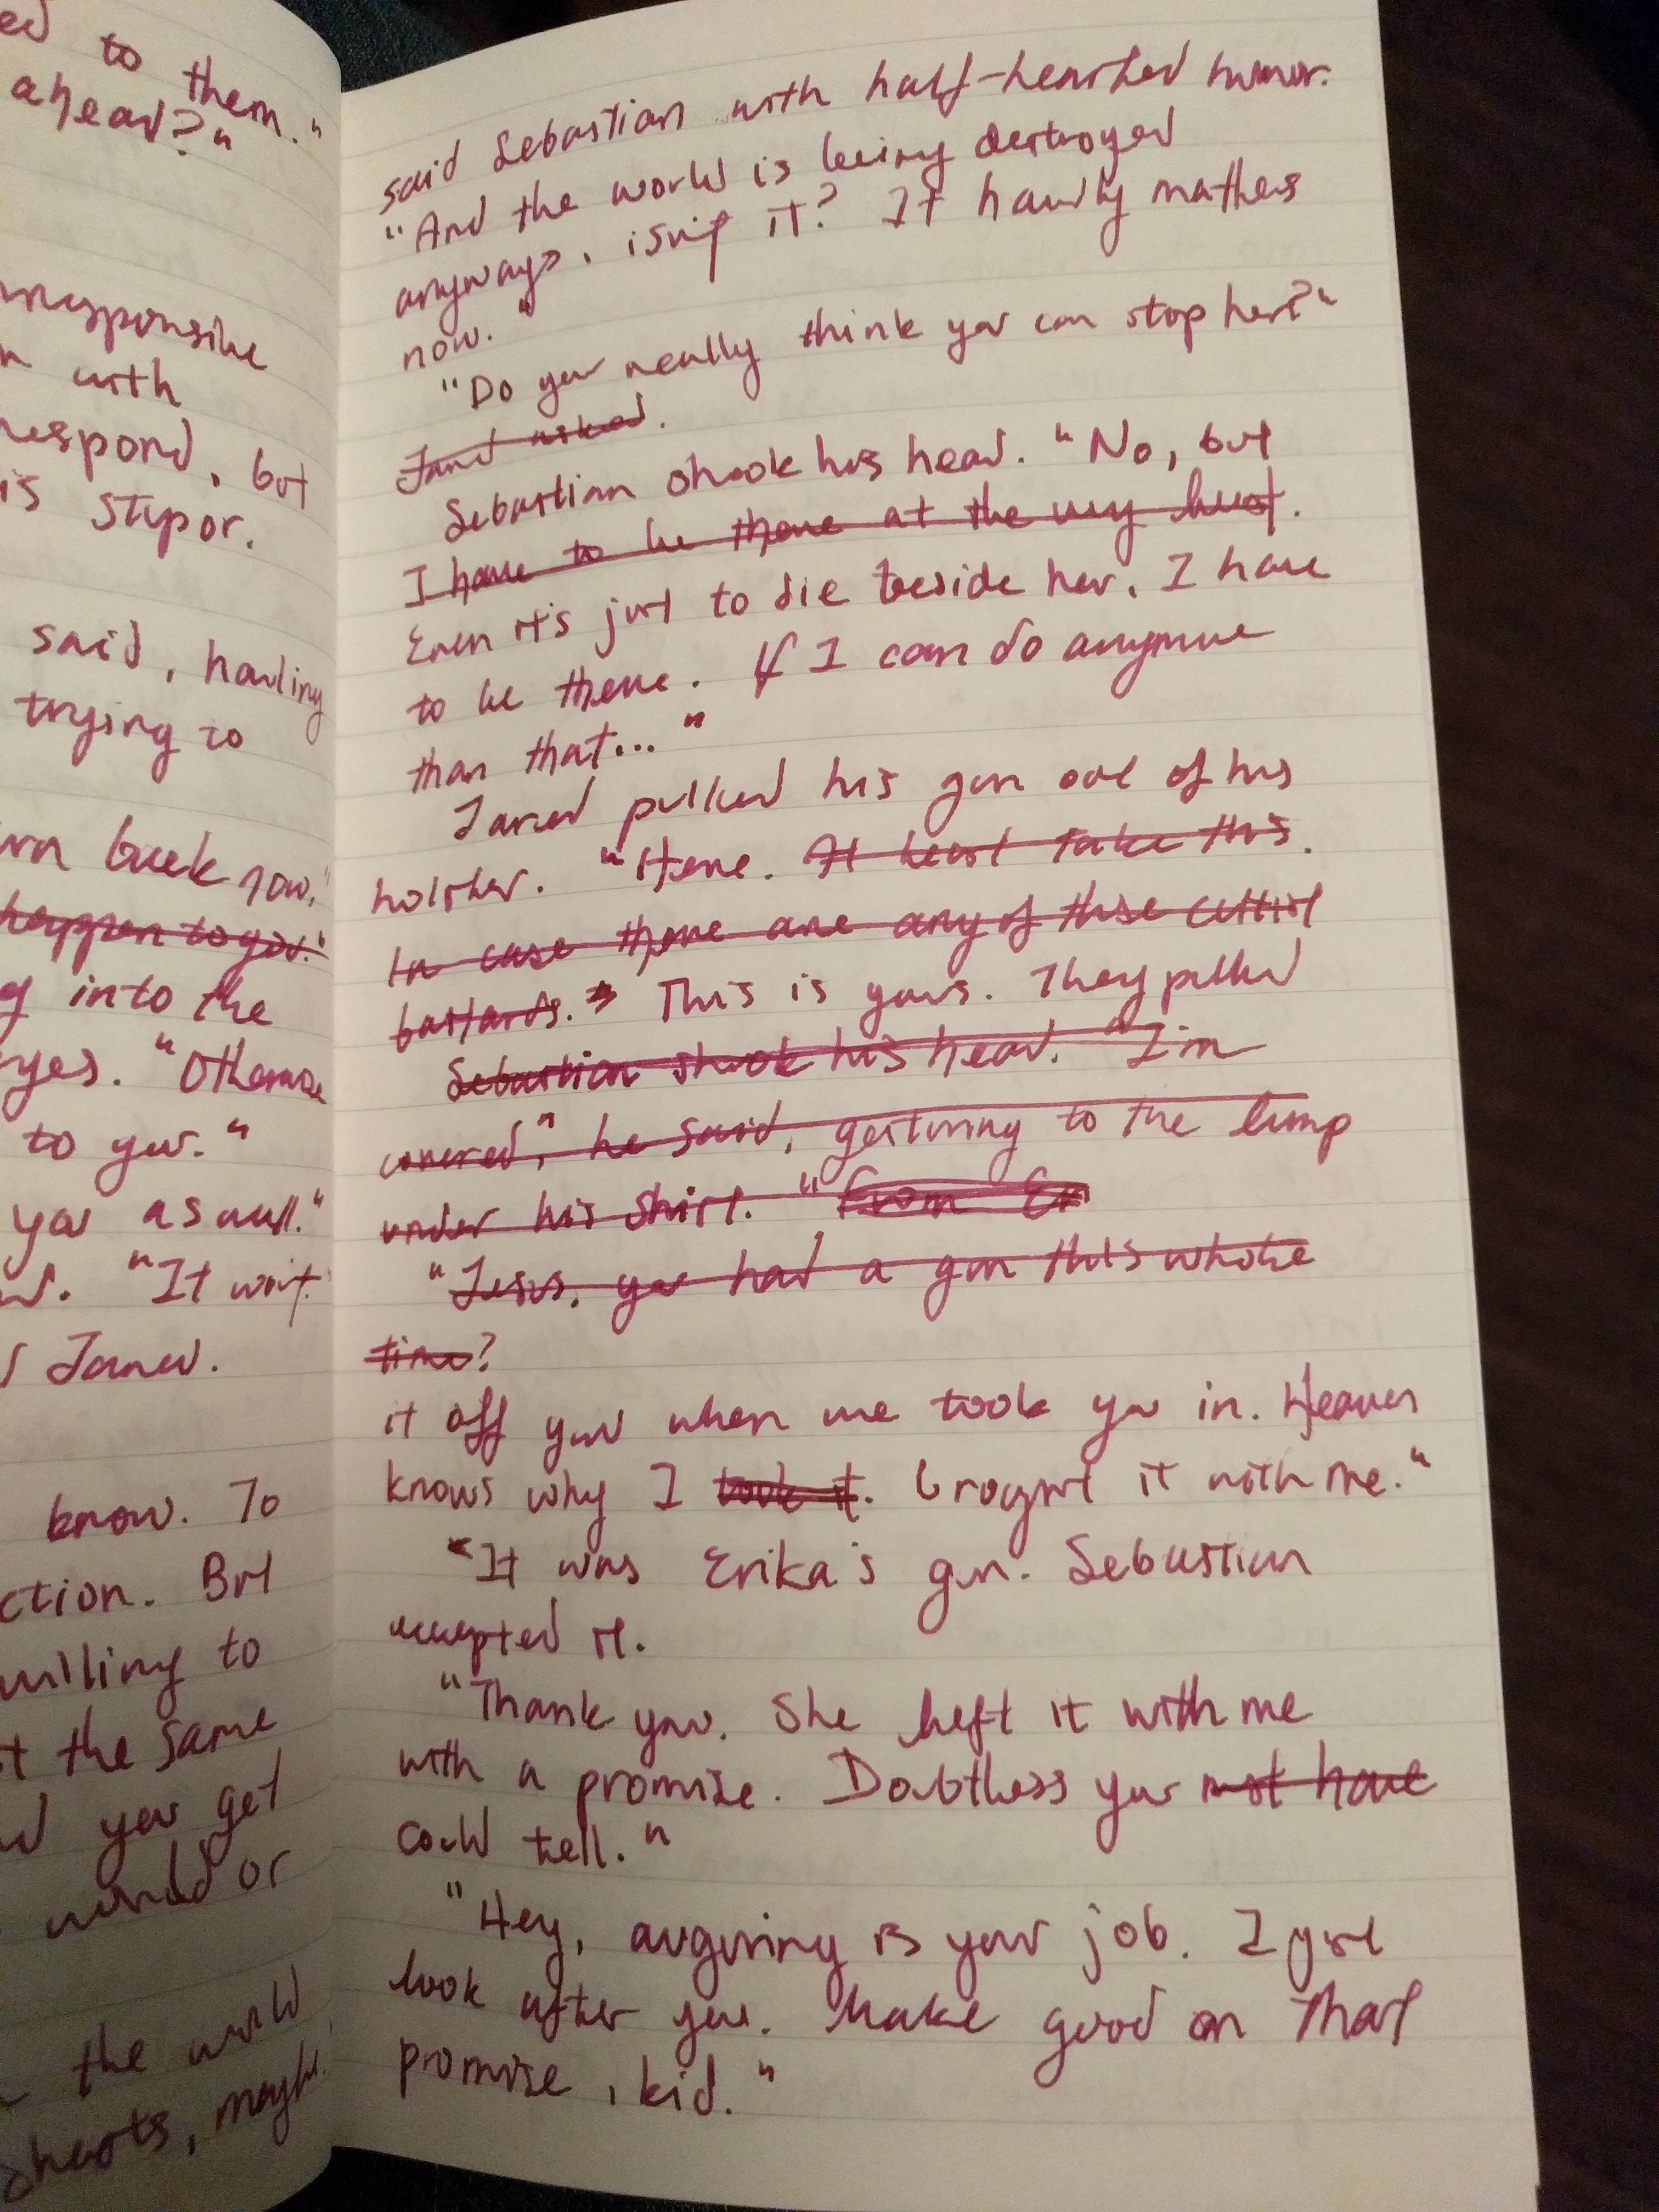 ed to them."
ahead?"
unresponsive
with
respond, but
is stupor.
said, hauling
trying to
urn back now,"
happen to you."
g into the
yes. "Otherwise
to you."
you as well."
"It won't
Jared.
know. To
ction. But
willing to
t the same
you get
world or
the world
hearts, maybe
said Sebastian with half-hearted humor.
"And the world is being destroyed
anyways, isn't it? It hardly matters
now."
"Do you really think you can stop her?"
Jared asked.
Sebastian shook his head. "No, but
I have to be there at the very least.
Even it's just to die beside her, I have
to be there. If I can do anymore
than that..."
Jared pulled his gun out of his
holster. "Here. At least take this.
In case there are any of those cultist
bastards." This is yours. They pulled
Sebastian shook his head. "I'm
covered," he said, gesturing to the lump
under his shirt. "From Er
"Jesus, you had a gun this whole
time?
it off you when we took you in. Heaven
knows why I took it. brought it with me."
"It was Erika's gun. Sebastian
accepted it.
"Thank you. She left it with me
with a promise. Doubtless you must have
could tell."
"Hey, auguring is your job. I just
look after you. Make good on that
promise, kid."